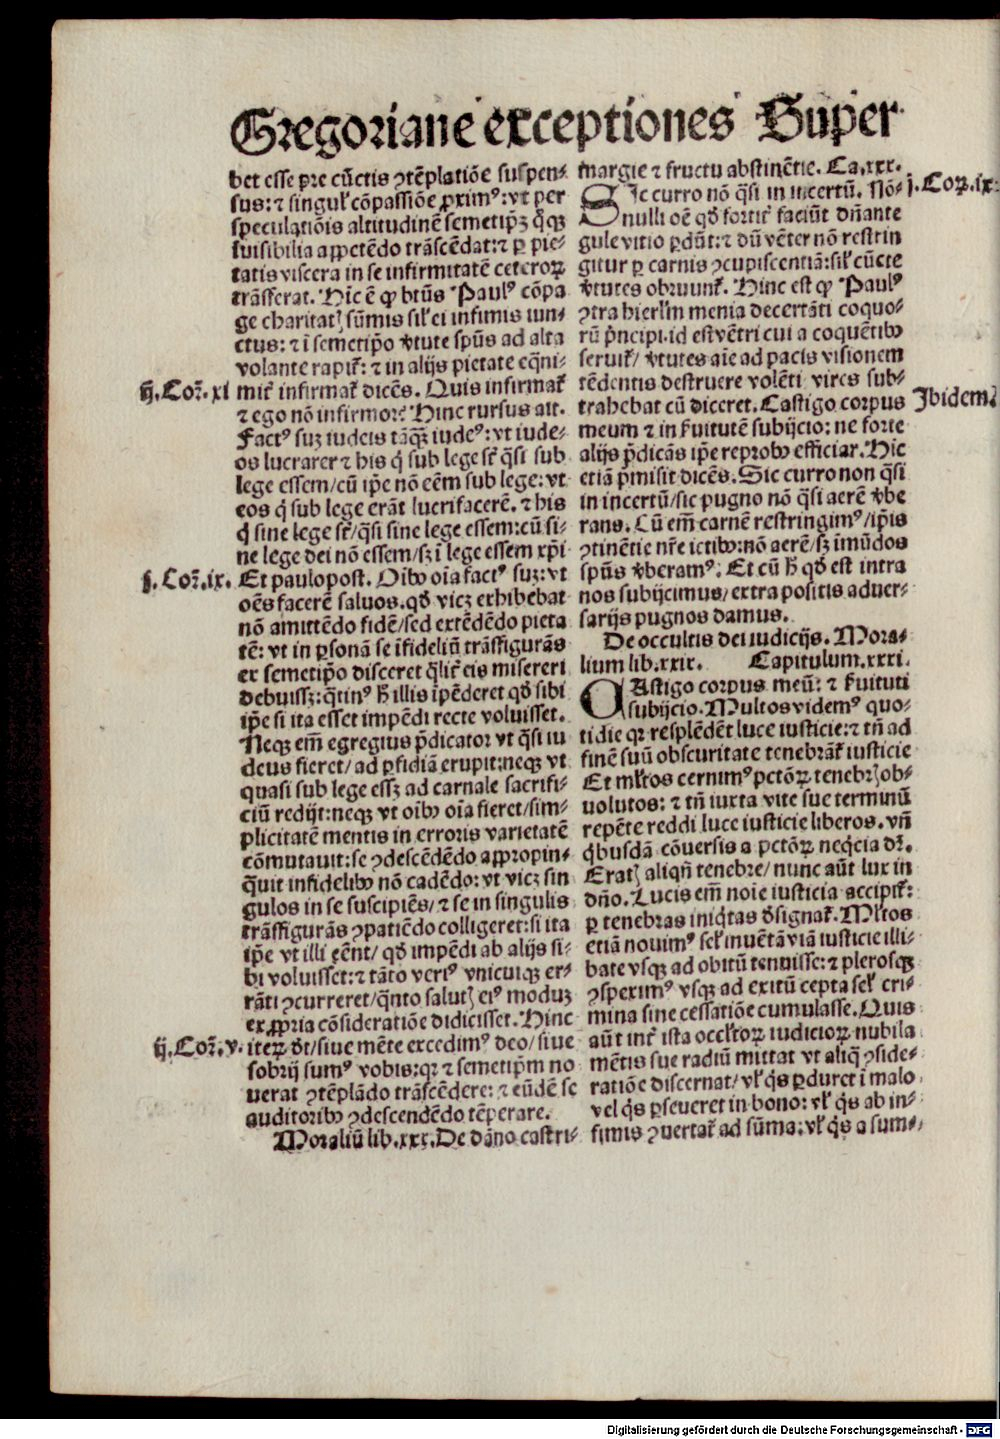 Gregoriane exceptiones Super
bet esse pre cūctis ꝯtēplatiōe suspen⸗
sus: ⁊ singul' cōpassiōe ꝓximꝰ: vt per
speculatiōis altitudinē semetip̄ꝫ q̄ꝗꝫ
inuisibilia appetēdo trāscēdat: ⁊ ꝑ pie⸗
tatis viscera in se infirmitatē ceteroꝝ
trāsferat. Hīc ē ꝙ btūs Paulꝰ cōpa
ge charitatꝭ sūmis sil' ei infimis iun⸗
ctus: ⁊ ī semetip̄o v̄tute spūs ad alta
volante rapit̄: ⁊ in alijs pietate eq̄ni⸗
ij. Coꝛ. xi mit̄ infirmat̄ dicēs. Quis infirmat̄
⁊ ego nō infirmor? Hinc rursus ait.
Factꝰ suꝫ iudeis tāqꝫ iudeꝰ: vt iude⸗
os lucrarer ⁊ his q̄ sub lege sē q̄si sub
lege essem/cū ip̄e nō eēm sub lege: vt
eos q̄ sub lege erāt lucrifacerē. ⁊ his
q̄ sine lege sē/q̄si sine lege essem: cū si⸗
ne lege dei nō essem/sꝫ ī lege essem xp̄i
j. Coꝛ. ix. Et paulopost. Oībꝰ oīa factꝰ suꝫ: vt
oēs facerē saluos. qd̄ vicꝫ exhibebat
nō amittēdo fidē/sed extēdēdo pieta
tē: vt in ꝑsonā se īfideliū trāsfigurās
ex semetip̄o disceret q̄lit̄ eis misereri
debuissꝫ: q̄tinꝰ h̄ illis īpēderet qd̄ sibi
ip̄e si ita esset impēdi recte voluisset.
Neqꝫ em̄ egregius p̄dicator vt q̄si iu
deus fieret/ ad ꝑfidiā erupit: neqꝫ vt
quasi sub lege essꝫ ad carnale sacrifi⸗
ciū redijt: neqꝫ vt oībꝰ oīa fieret/sim⸗
plicitatē mentis in erroris varietatē
cōmutauit: se ꝯdescēdēdo appropin⸗
q̄uit infidelibꝰ nō cadēdo: vt vicꝫ sin
gulos in se suscipiēs/ ⁊ se in singulis
trāsfigurās ꝯpatiēdo colligeret: si ita
ip̄e vt illi eēnt/ qd̄ impēdi ab alijs si⸗
bi voluisset: ⁊ tāto veriꝰ vnicuiqꝫ er⸗
rāti ꝯcurreret/q̄nto salutꝭ eiꝰ moduꝫ
ex ꝓpria cōsideratiōe didicisset. Hinc
ij. Coꝛ. v. iteꝝ dt̄/siue mēte excedimꝰ deo/siue
sobrij sumꝰ vobis: qꝛ ⁊ semetip̄m no
uerat ꝯtēplādo trāscēdere: ⁊ eūdē se
auditoribꝰ ꝯdescendēdo tēperare.
Moraliū lib. xxx. De dāno castri⸗
margie ⁊ fructu abstinētie. Ca. xxx.
SIc curro nō q̄si in incertū. Nō⸗ j. Coꝝ. ix:
nulli oē qd̄ fortit̄ faciūt dn̄ante
gule vitio ꝑdūt: ⁊ dū vēter nō restrin
gitur ꝑ carnis ꝯcupiscentiā: sil' cūcte
v̄tutes obruunt̄. Hinc est ꝙ Paulꝰ
ꝯtra hierl'm menia decertāti coquo⸗
rū p̄ncipi. id est vētri cui a coquētibꝰ
seruit̄/ v̄tutes aīe ad pacis visionem
tēdentis destruere volēti vires sub⸗
trahebat cū diceret. Castigo corpus Ibidem.
meum ⁊ in s̄uitutē subijcio: ne forte
alijs p̄dicās ip̄e reprobꝰ efficiar. Hic
etiā p̄misit dicēs. Sic curro non q̄si
in incertū/sic pugno nō q̄si aerē v̄be
rans. Cū em̄ carnē restringimꝰ/ip̄is
ꝯtinētie nr̄e ictibꝰ: nō aerē/sꝫ īmūdos
spūs v̄beramꝰ. Et cū h̄ qd̄ est intra
nos subijcimus/extra positis aduer⸗
sarijs pugnos damus.
De occultis dei iudicijs. Mora⸗
lium lib. xxix. Capitulum. xxxi.
CAstigo corpus meū: ⁊ s̄uituti
subijcio. Multos videmꝰ quo⸗
tidie qꝛ resplēdēt luce iusticie: ⁊ tn̄ ad
finē suū obscuritate tenebrāt̄ iusticie
Et ml'tos cernimꝰ pctōꝝ tenebrꝭ ob⸗
uolutos: ⁊ tn̄ iuxta vite sue terminū
repēte reddi luce iusticie liberos. vn̄
q̄busdā cōuersis a pctōꝝ neq̄cia dr̄.
Eratꝭ aliqn̄ tenebre/ nunc aūt lux in
dn̄o. Lucis em̄ noīe iusticia accipit̄:
ꝑ tenebras iniq̄tas d̄signat̄. Ml'tos
etiā nouimꝰ sel' inuētā viā iusticie illi⸗
bate vsqꝫ ad obitū tenuisse: ⁊ plerosqꝫ
ꝯspeximꝰ vsqꝫ ad exitū cepta sel' cri⸗
mina sine cessatiōe cumulasse. Quis
aūt int̄ ista occl'toꝝ iudicioꝝ nubila
mētis sue radiū mittat vt aliq̄ ꝯside⸗
ratiōe discernat/ vl' q̄s ꝑduret ī malo
vel q̄s ꝑseueret in bono: vl' q̄s ab in⸗
fimis ꝯuertat̄ ad sūma: vl' q̄s a sum⸗
Digitalisierung gefördert durch die Deutsche Forschungsgemeinschaft - DFG